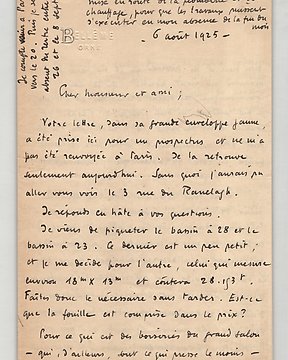 mise en route de la plomberie et du
chauffage, pour que les travaux puissent
s'exécuter en mon absence de la fin du
mois
Je compte venir à Paris
vers le 20. Puis je
absent de entre
26 et le 8 sept
BELLÊME
ORNE
6 août 1925 -
Cher monsieur et ami ;
Votre lettre, dans sa grande enveloppe jaune,
a été prise ici pour un prospectus et ne m'a
pas été renvoyée à Paris. Je la retrouve
seulement aujourd'hui. Sans quoi j'aurais pu
aller vous voir le 3 rue du Ranelagh.
Je réponds en hâte à vos questions.
Je viens de piqueter le bassin à 28 et le
bassin à 23. Ce dernier est un peu petit ;
et je me décide pour l'autre, celui qui mesure
environ 13m X 13m et coûtera 28.
Faites donc le nécessaire sans tarder. Est-ce
que la fouille est comprise dans le prix ?
Pour ce qui est des boiseries du grand salon
- qui, d'ailleurs, est ce qui presse le moins -